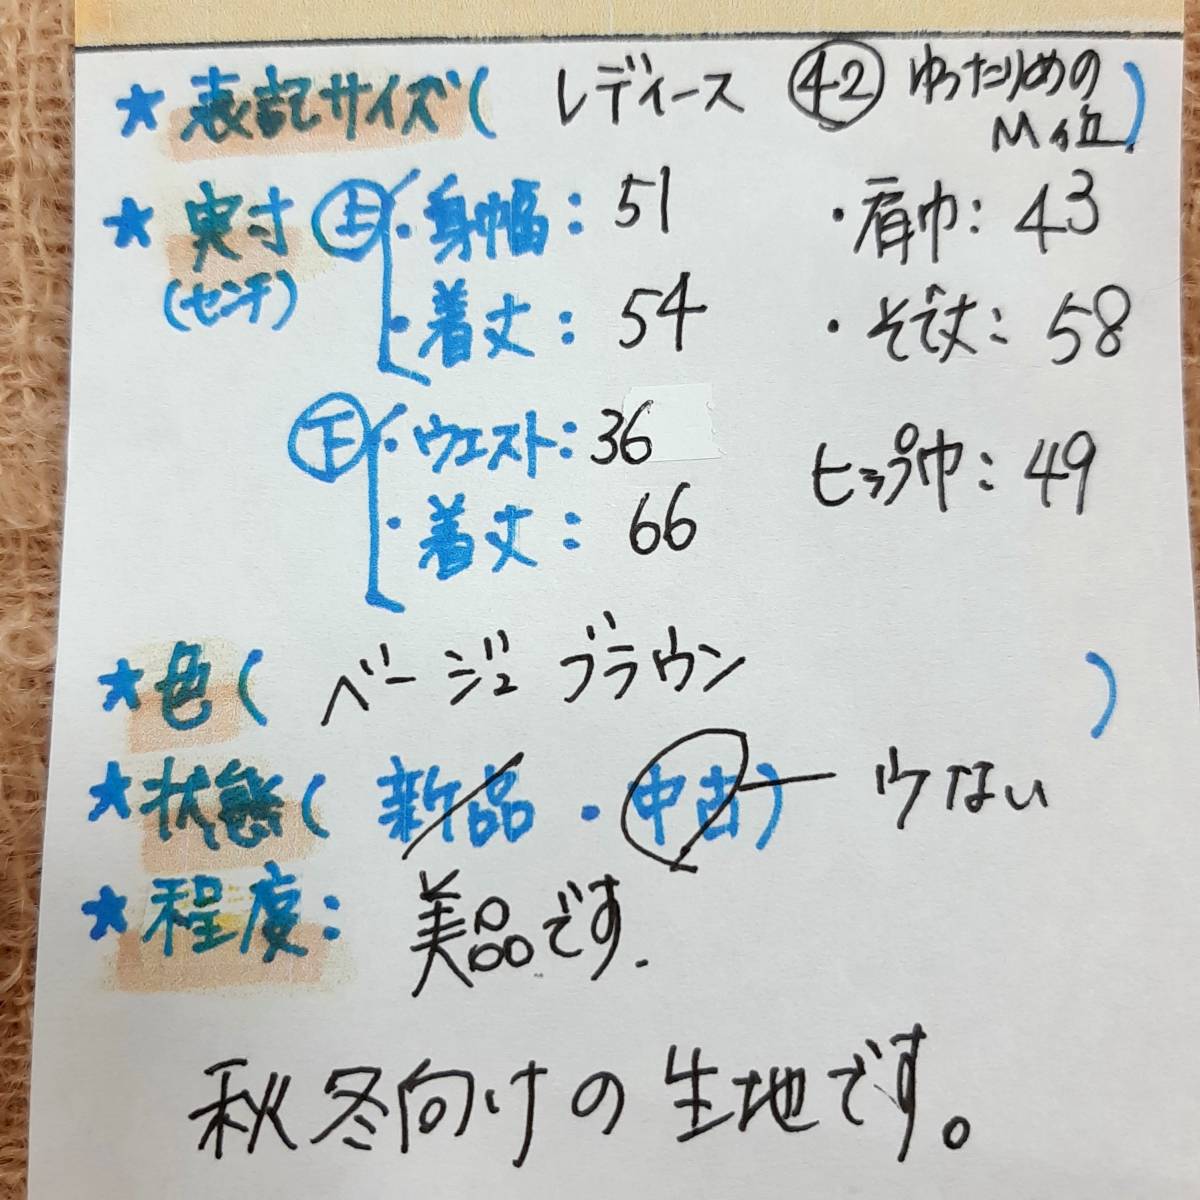 ★表記サイズ( レディース ㊷ ゆったりめの
M位)
★実寸 ㊤ ・身幅: 51 ・肩巾: 43
(センチ) ・着丈: 54 ・そで丈: 58
㊦ ・ウエスト: 36 ヒップ巾: 49
・着丈: 66
★色( ベージュ ブラウン )
★状態( 新品・中古)
★程度: 美品です.
秋冬向けの生地です。